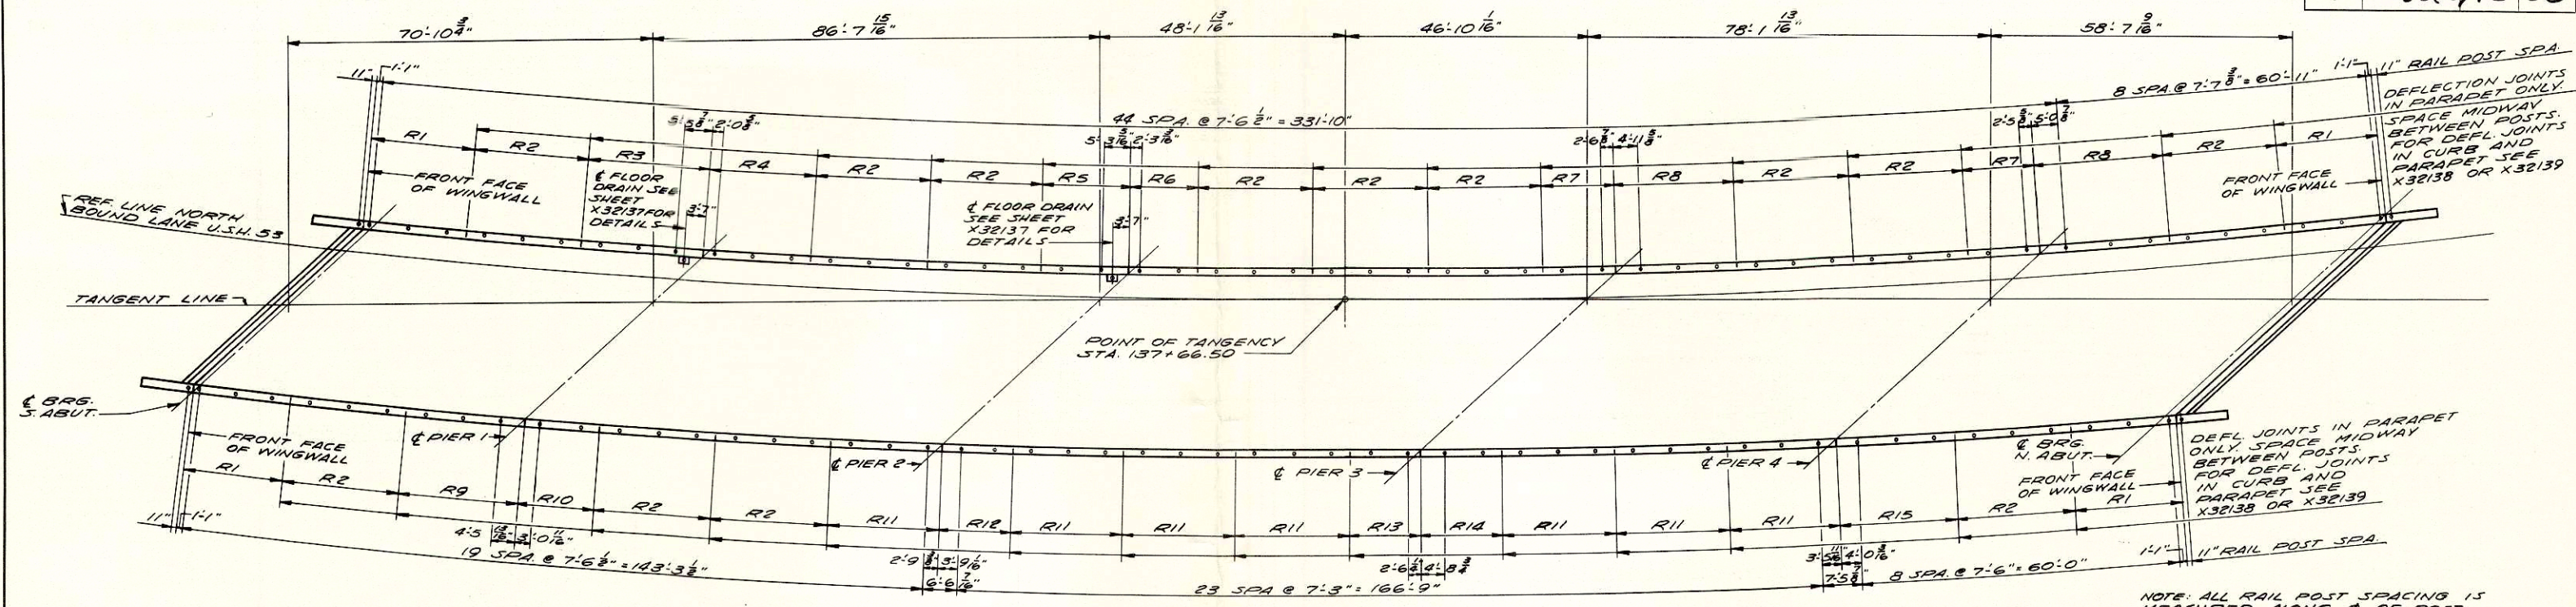 70'-10 3/4"
86'-7 15/16"
48'-1 13/16"
46'-10 1/16"
78'-1 13/16"
58'-7 9/16"
11"
1'-1"
44 SPA. @ 7'-6 1/2" = 331'-10"
8 SPA. @ 7'-7 3/8" = 60'-11"
1'-1"
11" RAIL POST SPA.
DEFLECTION JOINTS
IN PARAPET ONLY.
SPACE MIDWAY
BETWEEN POSTS.
FOR DEFL. JOINTS
IN CURB AND
PARAPET SEE
X32138 OR X32139
5'-5 7/8"
2'-0 5/8"
5'-3 5/16"
2'-3 3/16"
2'-6 7/8"
4'-11 5/8"
2'-5 5/8"
5'-0 7/8"
R1
R2
R3
R4
R2
R2
R5
R6
R2
R2
R2
R7
R8
R2
R2
R7
R8
R2
R1
FRONT FACE
OF WINGWALL
℄ FLOOR
DRAIN SEE
SHEET
X32137 FOR
DETAILS
3'-7"
℄ FLOOR DRAIN
SEE SHEET
X32137 FOR
DETAILS
3'-7"
FRONT FACE
OF WINGWALL
REF. LINE NORTH
BOUND LANE U.S.H. 53
TANGENT LINE
POINT OF TANGENCY
STA. 137+66.50
℄ BRG.
S. ABUT.
℄ PIER 1
℄ PIER 2
℄ PIER 3
℄ PIER 4
℄ BRG.
N. ABUT.
FRONT FACE
OF WINGWALL
FRONT FACE
OF WINGWALL
DEFL. JOINTS IN PARAPET
ONLY. SPACE MIDWAY
BETWEEN POSTS.
FOR DEFL. JOINTS
IN CURB AND
PARAPET SEE
X32138 OR X32139
R1
R2
R9
R10
R2
R2
R11
R12
R11
R11
R11
R13
R14
R11
R11
R11
R15
R2
R1
11"
1'-1"
4'-5 13/16"
3'-0 11/16"
19 SPA. @ 7'-6 1/2" = 143'-3 1/2"
2'-9 3/8"
3'-9 1/16"
6'-6 7/16"
2'-6 1/4"
4'-8 3/4"
23 SPA @ 7'-3" = 166'-9"
3'-5 11/16"
4'-0 3/16"
7'-5 7/8"
8 SPA. @ 7'-6" = 60'-0"
1'-1"
11" RAIL POST SPA.
NOTE: ALL RAIL POST SPACING IS